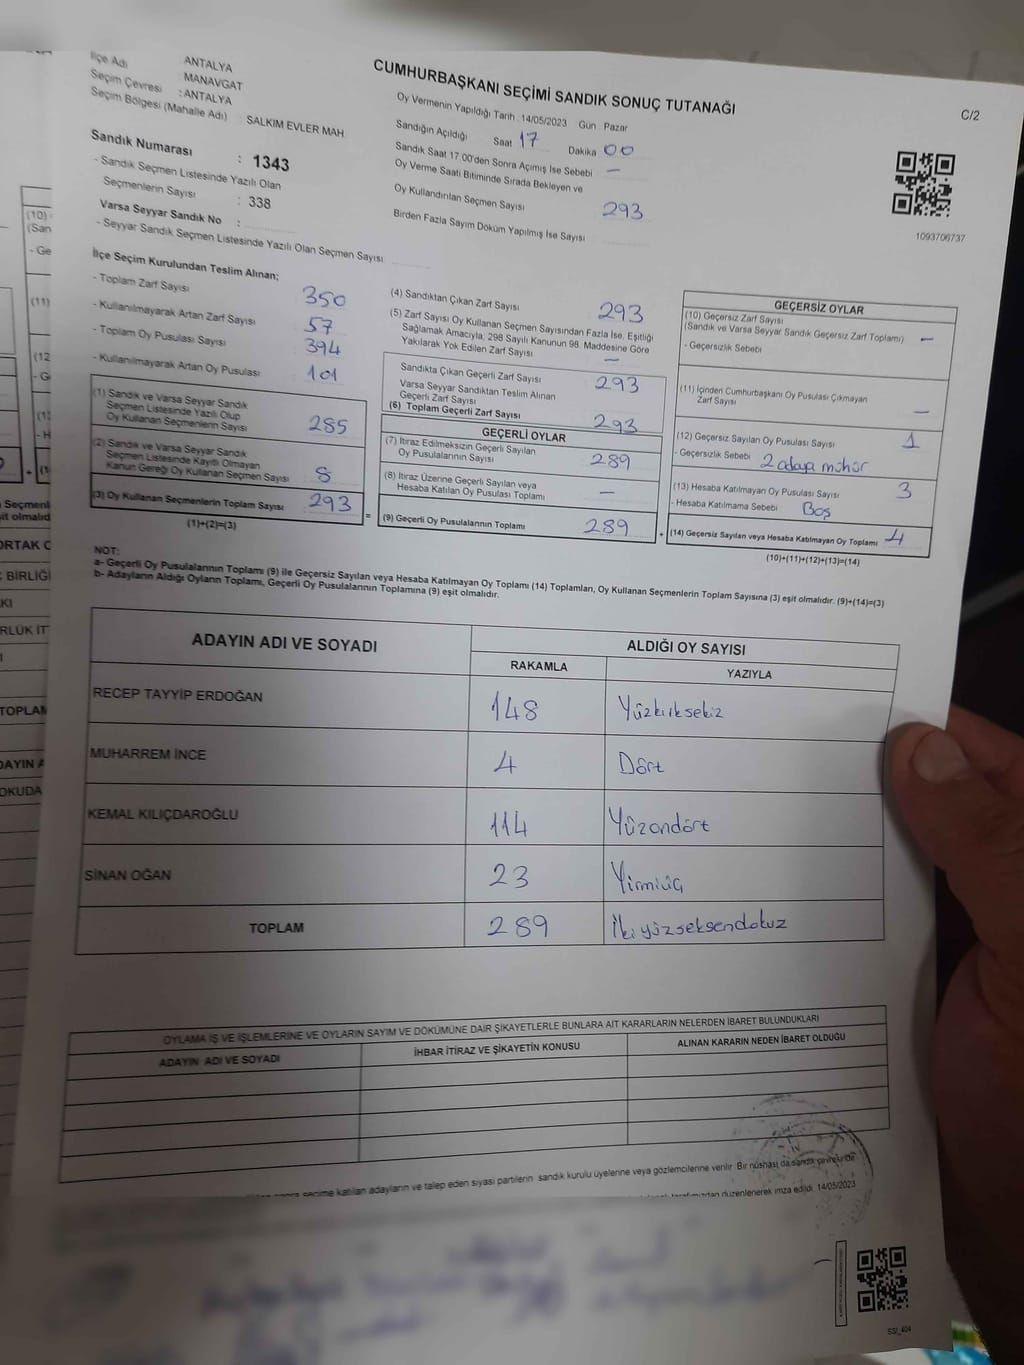 CUMHURBAŞKANI SEÇİMİ SANDIK SONUÇ TUTANAĞI
C/2
İlçe Adı
ANTALYA
MANAVGAT
Seçim Çevresi : ANTALYA
Seçim Bölgesi (Mahalle Adı) : SALKIM EVLER MAH.
Sandık Numarası : 1343
- Sandık Seçmen Listesinde Yazılı Olan
Seçmenlerin Sayısı : 338
Varsa Seyyar Sandık No :
- Seyyar Sandık Seçmen Listesinde Yazılı Olan Seçmen Sayısı
Oy Vermenin Yapıldığı Tarih : 14/05/2023 Gün Pazar
Sandığın Açıldığı Saat 17 Dakika 00
Sandık Saat 17:00'den Sonra Açımış İse Sebebi —
Oy Verme Saati Bitiminde Sırada Bekleyen ve
Oy Kullandırılan Seçmen Sayısı 293
Birden Fazla Sayım Döküm Yapılmış İse Sayısı
1093706737
İlçe Seçim Kurulundan Teslim Alınan;
- Toplam Zarf Sayısı 350
- Kullanılmayarak Artan Zarf Sayısı 57
- Toplam Oy Pusulası Sayısı 394
- Kullanılmayarak Artan Oy Pusulası 101
(1) Sandık ve Varsa Seyyar Sandık
Seçmen Listesinde Yazılı Olup
Oy Kullanan Seçmenlerin Sayısı 285
(2) Sandık ve Varsa Seyyar Sandık
Seçmen Listesinde Kayıtlı Olmayan
Kanun Gereği Oy Kullanan Seçmen Sayısı 8
(3) Oy Kullanan Seçmenlerin Toplam Sayısı 293
(1)+(2)=(3)
(4) Sandıktan Çıkan Zarf Sayısı 293
(5) Zarf Sayısı Oy Kullanan Seçmen Sayısından Fazla İse, Eşitliği
Sağlamak Amacıyla, 298 Sayılı Kanunun 98. Maddesine Göre
Yakılarak Yok Edilen Zarf Sayısı —
Sandıkta Çıkan Geçerli Zarf Sayısı 293
Varsa Seyyar Sandıktan Teslim Alınan
Geçerli Zarf Sayısı
(6) Toplam Geçerli Zarf Sayısı 293
GEÇERLİ OYLAR
(7) İtiraz Edilmeksizin Geçerli Sayılan
Oy Pusulalarının Sayısı 289
(8) İtiraz Üzerine Geçerli Sayılan veya
Hesaba Katılan Oy Pusulası Toplamı —
= (9) Geçerli Oy Pusulalarının Toplamı 289 +
GEÇERSİZ OYLAR
(10) Geçersiz Zarf Sayısı
(Sandık ve Varsa Seyyar Sandık Geçersiz Zarf Toplamı) —
- Geçersizlik Sebebi
(11) İçinden Cumhurbaşkanı Oy Pusulası Çıkmayan
Zarf Sayısı —
(12) Geçersiz Sayılan Oy Pusulası Sayısı 1
- Geçersizlik Sebebi 2 adaya mühür
(13) Hesaba Katılmayan Oy Pusulası Sayısı 3
- Hesaba Katılmama Sebebi Boş
(14) Geçersiz Sayılan veya Hesaba Katılmayan Oy Toplamı 4
(10)+(11)+(12)+(13)=(14)
NOT:
a- Geçerli Oy Pusulalarının Toplamı (9) ile Geçersiz Sayılan veya Hesaba Katılmayan Oy Toplamı (14) Toplamları, Oy Kullanan Seçmenlerin Toplam Sayısına (3) eşit olmalıdır. (9)+(14)=(3)
b- Adayların Aldığı Oyların Toplamı, Geçerli Oy Pusulalarının Toplamına (9) eşit olmalıdır.
ADAYIN ADI VE SOYADI ALDIĞI OY SAYISI
RAKAMLA YAZIYLA
RECEP TAYYİP ERDOĞAN 148 Yüzkırksekiz
MUHARREM İNCE 4 Dört
KEMAL KILIÇDAROĞLU 114 Yüzondört
SİNAN OĞAN 23 Yirmiüç
TOPLAM 289 İkiyüzseksendokuz
OYLAMA İŞ VE İŞLEMLERİNE VE OYLARIN SAYIM VE DÖKÜMÜNE DAİR ŞİKAYETLERLE BUNLARA AİT KARARLARIN NELERDEN İBARET BULUNDUKLARI
ADAYIN ADI VE SOYADI İHBAR İTİRAZ VE ŞİKAYETİN KONUSU ALINAN KARARIN NEDEN İBARET OLDUĞU
seçime katılan adayların ve talep eden siyasi partilerin sandık kurulu üyelerine veya gözlemcilerine verilir. Bir nüshası da sandık çevresinde
tarafımızdan düzenlenerek imza edildi. 14/05/2023
SSI_404